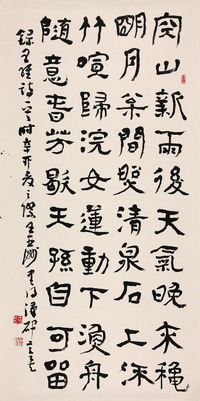 空山新雨後天氣晚來穐
朙月枩間照清泉石上流
竹喧歸浣女蓮動下漁舟
隨意春芳歇王孫自可留
錄王維詩